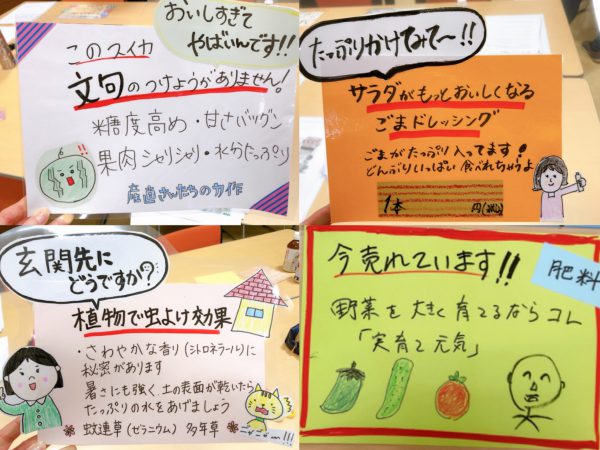 おいしすぎて
やばいんです!!
このスイカ
文句のつけようがありません!
糖度高め・甘さバツグン
果肉シャリシャリ・水分たっぷり
産直さんたちの力作
たっぷりかけてみて〜!!
サラダがもっとおいしくなる
ごまドレッシング
ごまがたっぷり入ってます!
どんぶりいっぱい食べれちゃうよ
1本 円(税)
玄関先に
どうですか?
植物で虫よけ効果
・さわやかな香り(シトロネラール)に
秘密があります
暑さにも強く、土の表面が乾いたら
たっぷりの水をあげましょう
蚊連草(ゼラニウム) 多年草
今売れています!!
肥料
野菜を大きく育てるならコレ
「実育て元気」